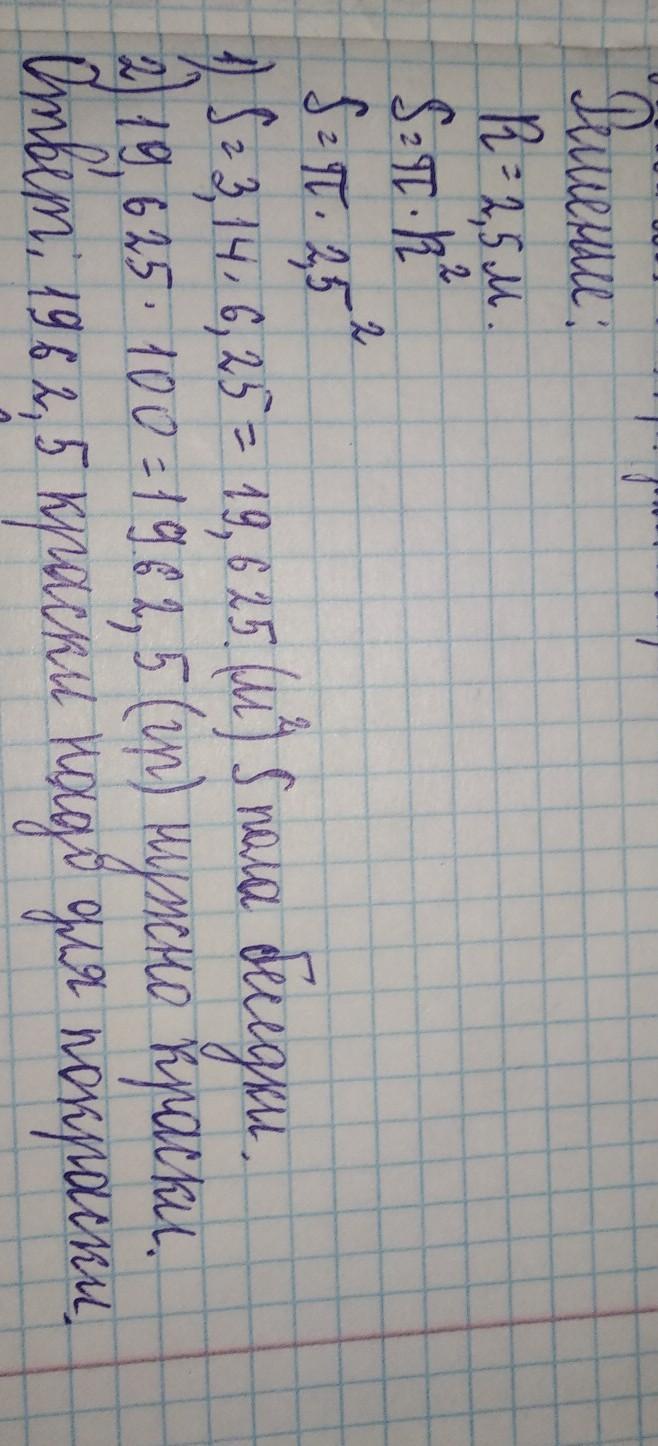 Решение:
R = 2,5 м.
S = π · R²
S = π · 2,5²
1) S = 3,14 · 6,25 = 19,625 (м²) S пола беседки.
2) 19,625 · 100 = 1962,5 (гр) нужно краски.
Ответ: 1962,5 краски надо для покраски.